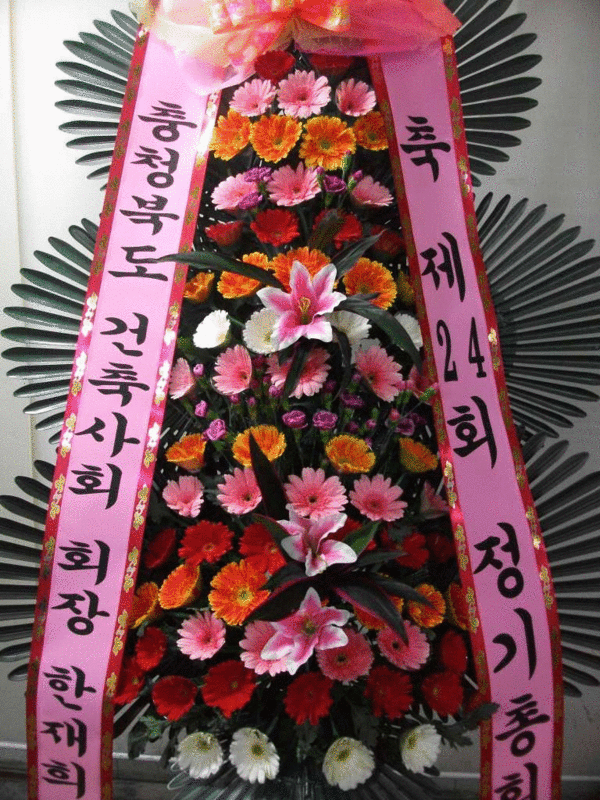 충청북도 건축사회 회장 한재희
축 제24회 정기총회